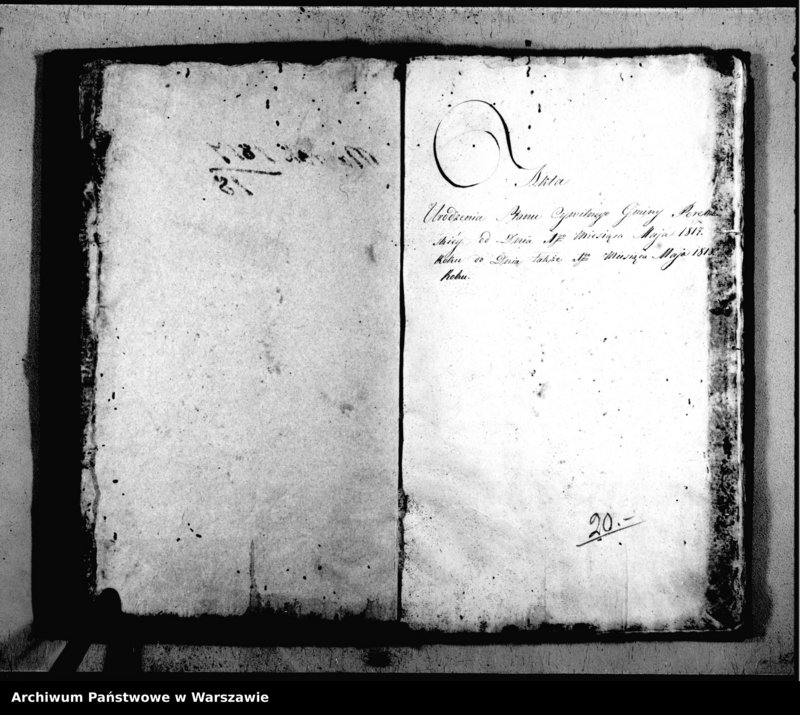 1817
18
Akta
Urodzenia Stanu Cywilnego Gminy
skiey od Dnia Miesiąca Maja 1817.
Roku do Dnia także Miesiąca Maja 1818
Roku.
20.-
Archiwum Państwowe w Warszawie